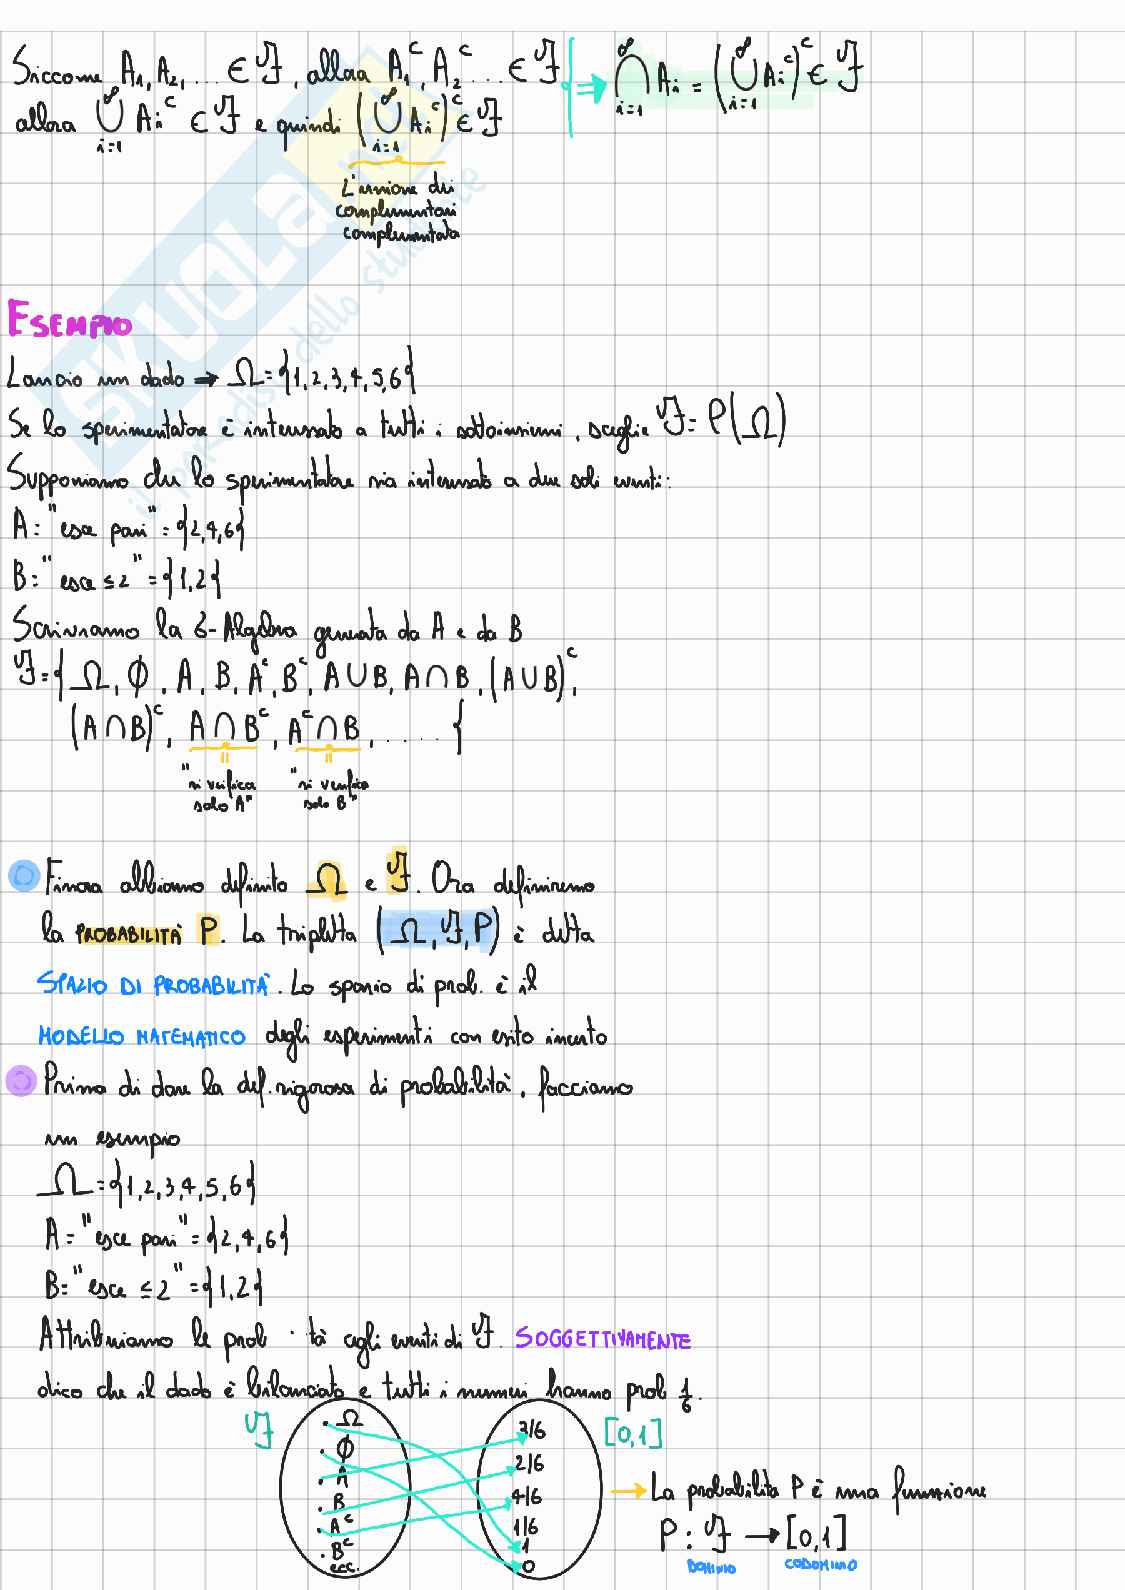 Siccome A₁, A₂, ... ∈ ℱ, allora A₁ᶜ, A₂ᶜ ... ∈ ℱ ⇒ ⋂_{i=1}^∞ Aᵢ = (⋃_{i=1}^∞ Aᵢᶜ)ᶜ ∈ ℱ
allora ⋃_{i=1}^∞ Aᵢᶜ ∈ ℱ e quindi (⋃_{i=1}^∞ Aᵢᶜ)ᶜ ∈ ℱ
L'unione dei
complementari
complementata
SKUOLA.net
il paradiso dello studente
ESEMPIO
Lancio un dado → Ω = {1, 2, 3, 4, 5, 6}
Se lo sperimentatore è interessato a tutti i sottoinsiemi, sceglie ℱ = P(Ω)
Supponiamo che lo sperimentatore sia interessato a due soli eventi:
A = "esce pari" = {2, 4, 6}
B = "esce ≤ 2" = {1, 2}
Scriviamo la σ-Algebra generata da A e da B
ℱ = {Ω, ∅, A, B, Aᶜ, Bᶜ, A∪B, A∩B, (A∪B)ᶜ,
(A∩B)ᶜ, A∩Bᶜ, Aᶜ∩B, ..... }
"si verifica "si verifica
solo A" solo B"
Finora abbiamo definito Ω e ℱ. Ora definiremo
la PROBABILITÀ P. La tripletta (Ω, ℱ, P) è detta
SPAZIO DI PROBABILITÀ. Lo spazio di prob. è il
MODELLO MATEMATICO degli esperimenti con esito incerto
Prima di dare la def. rigorosa di probabilità, facciamo
un esempio
Ω = {1, 2, 3, 4, 5, 6}
A = "esce pari" = {2, 4, 6}
B = "esce ≤ 2" = {1, 2}
Attribuiamo le prob. tà agli eventi di ℱ. SOGGETTIVAMENTE
dico che il dado è bilanciato e tutti i numeri hanno prob 1/6.
ℱ
. Ω
. ∅
. A
. B
. Aᶜ
. Bᶜ
ecc.
3/6
2/6
4/6
1/6
1
0
[0,1]
→ La probabilità P è una funzione
P : ℱ → [0,1]
DOMINIO CODOMINIO